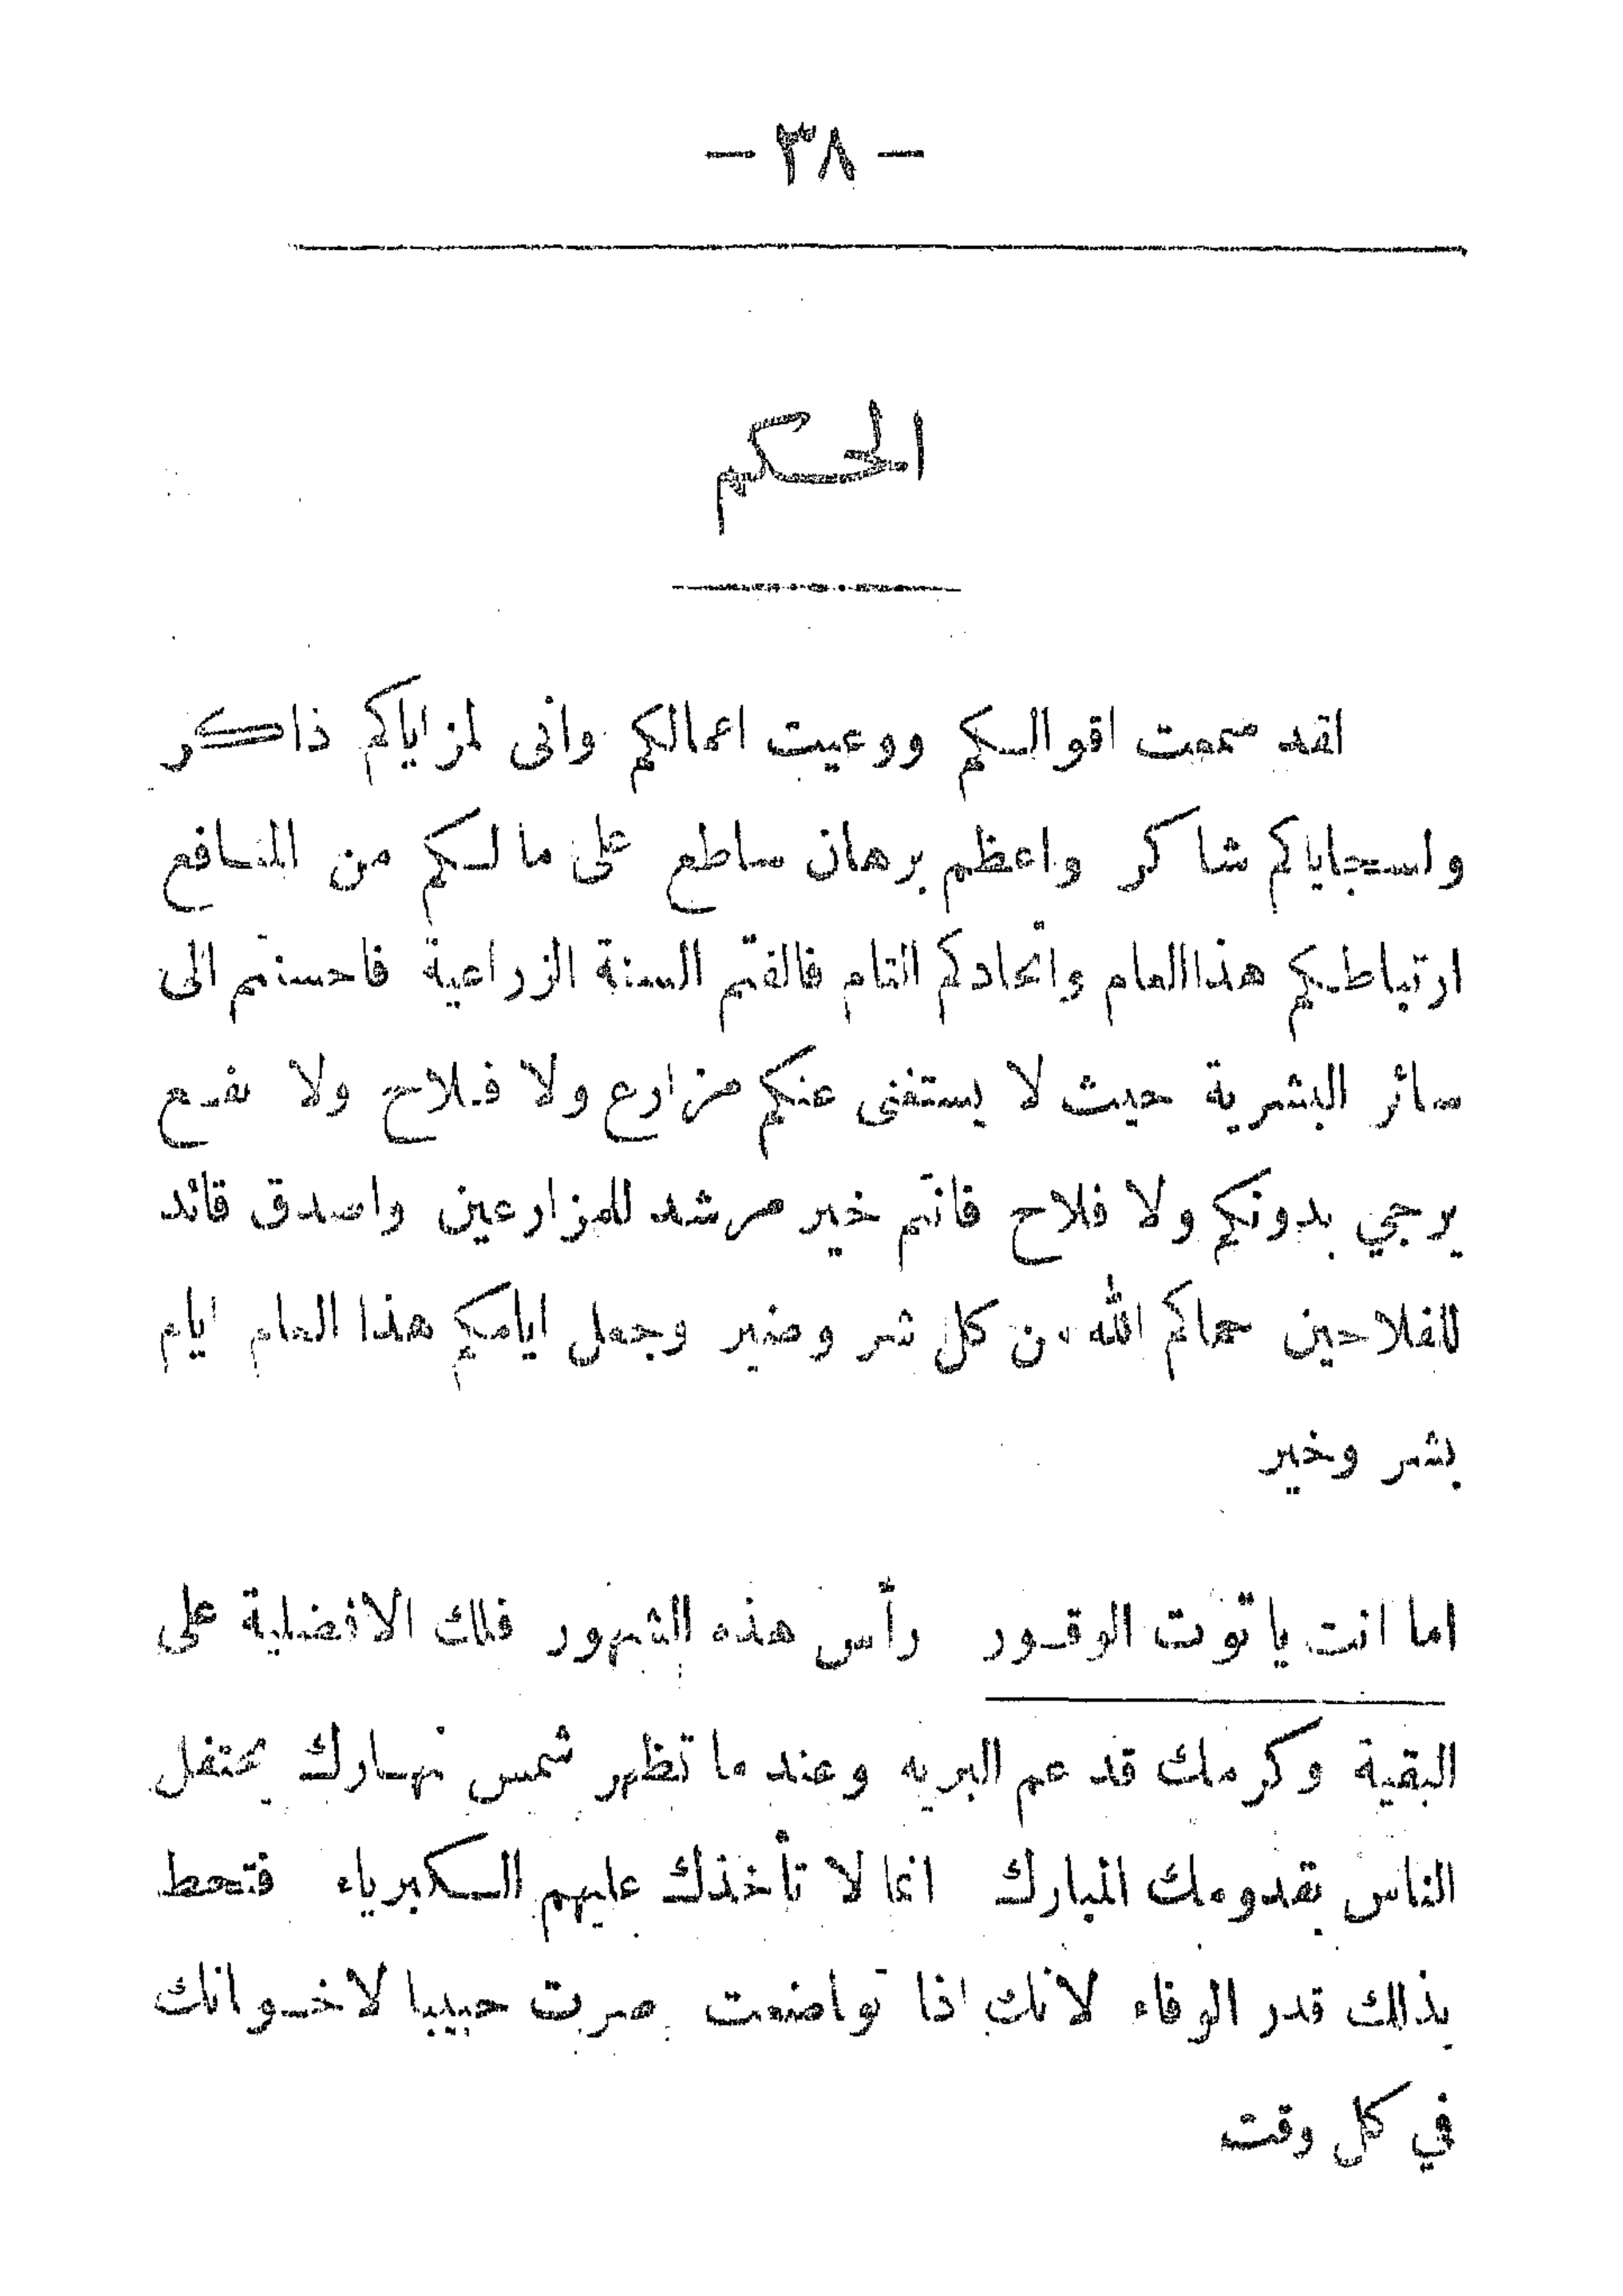 — ٣٨ —
الحكيم
لقد سمعت اقوالكم ووعيت اعمالكم وانى لمزاياكم ذاكر
ولسجاياكم شاكر واعظم برهان ساطع على مالكم من المنافع
ارتباطكم هذا العام واتحادكم التام فالفتم السنة الزراعية فاحسنتم الى
سائر البشرية حيث لا يستغنى عنكم مزارع ولا فلاح ولا نفع
يرجي بدونكم ولا فلاح فانتم خير مرشد للمزارعين واصدق قائد
للفلاحين حماكم الله من كل شر وضير وجعل ايامكم هذا العام ايام
بشر وخير
اما انت يا توت الوقور رأس هذه الشهور فلك الافضلية على
البقية وكرمك قد عم البريه وعند ما تظهر شمس نهارك يحتفل
الناس بقدومك المبارك انما لا تأخذك عليهم الكبرياء فتحط
بذلك قدر الوفاء لانك اذا تواضعت صرت حبيبا لاخوانك
في كل وقت